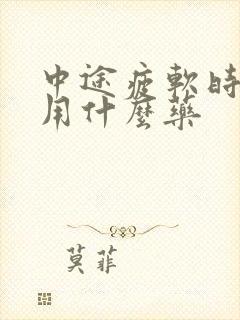 中途疲軟時
用什麼藥
莫菲